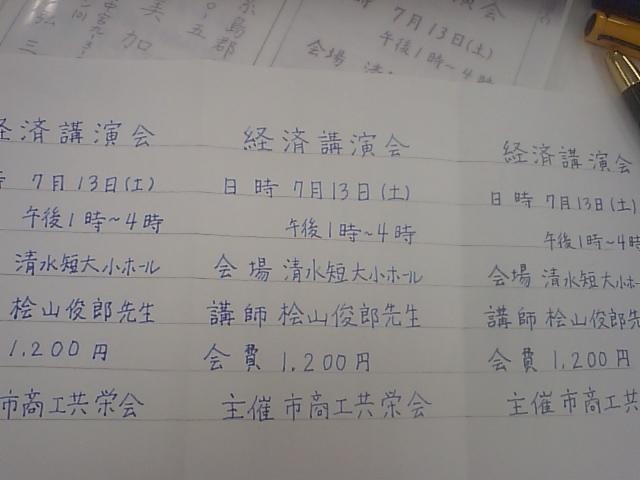 糸島郡
美加
弘三
演会
7月13日(土)
午後1時～4時
会場
経済講演会
時 7月13日(土)
午後1時～4時
清水短大小ホール
桧山俊郎先生
1,200円
市商工共栄会
経済講演会
日時 7月13日(土)
午後1時～4時
会場 清水短大小ホール
講師 桧山俊郎先生
会費 1,200円
主催 市商工共栄会
経済講演会
日時 7月13日(土)
午後1時～4時
会場 清水短大小ホー
講師 桧山俊郎先
会費 1,200円
主催 市商工共